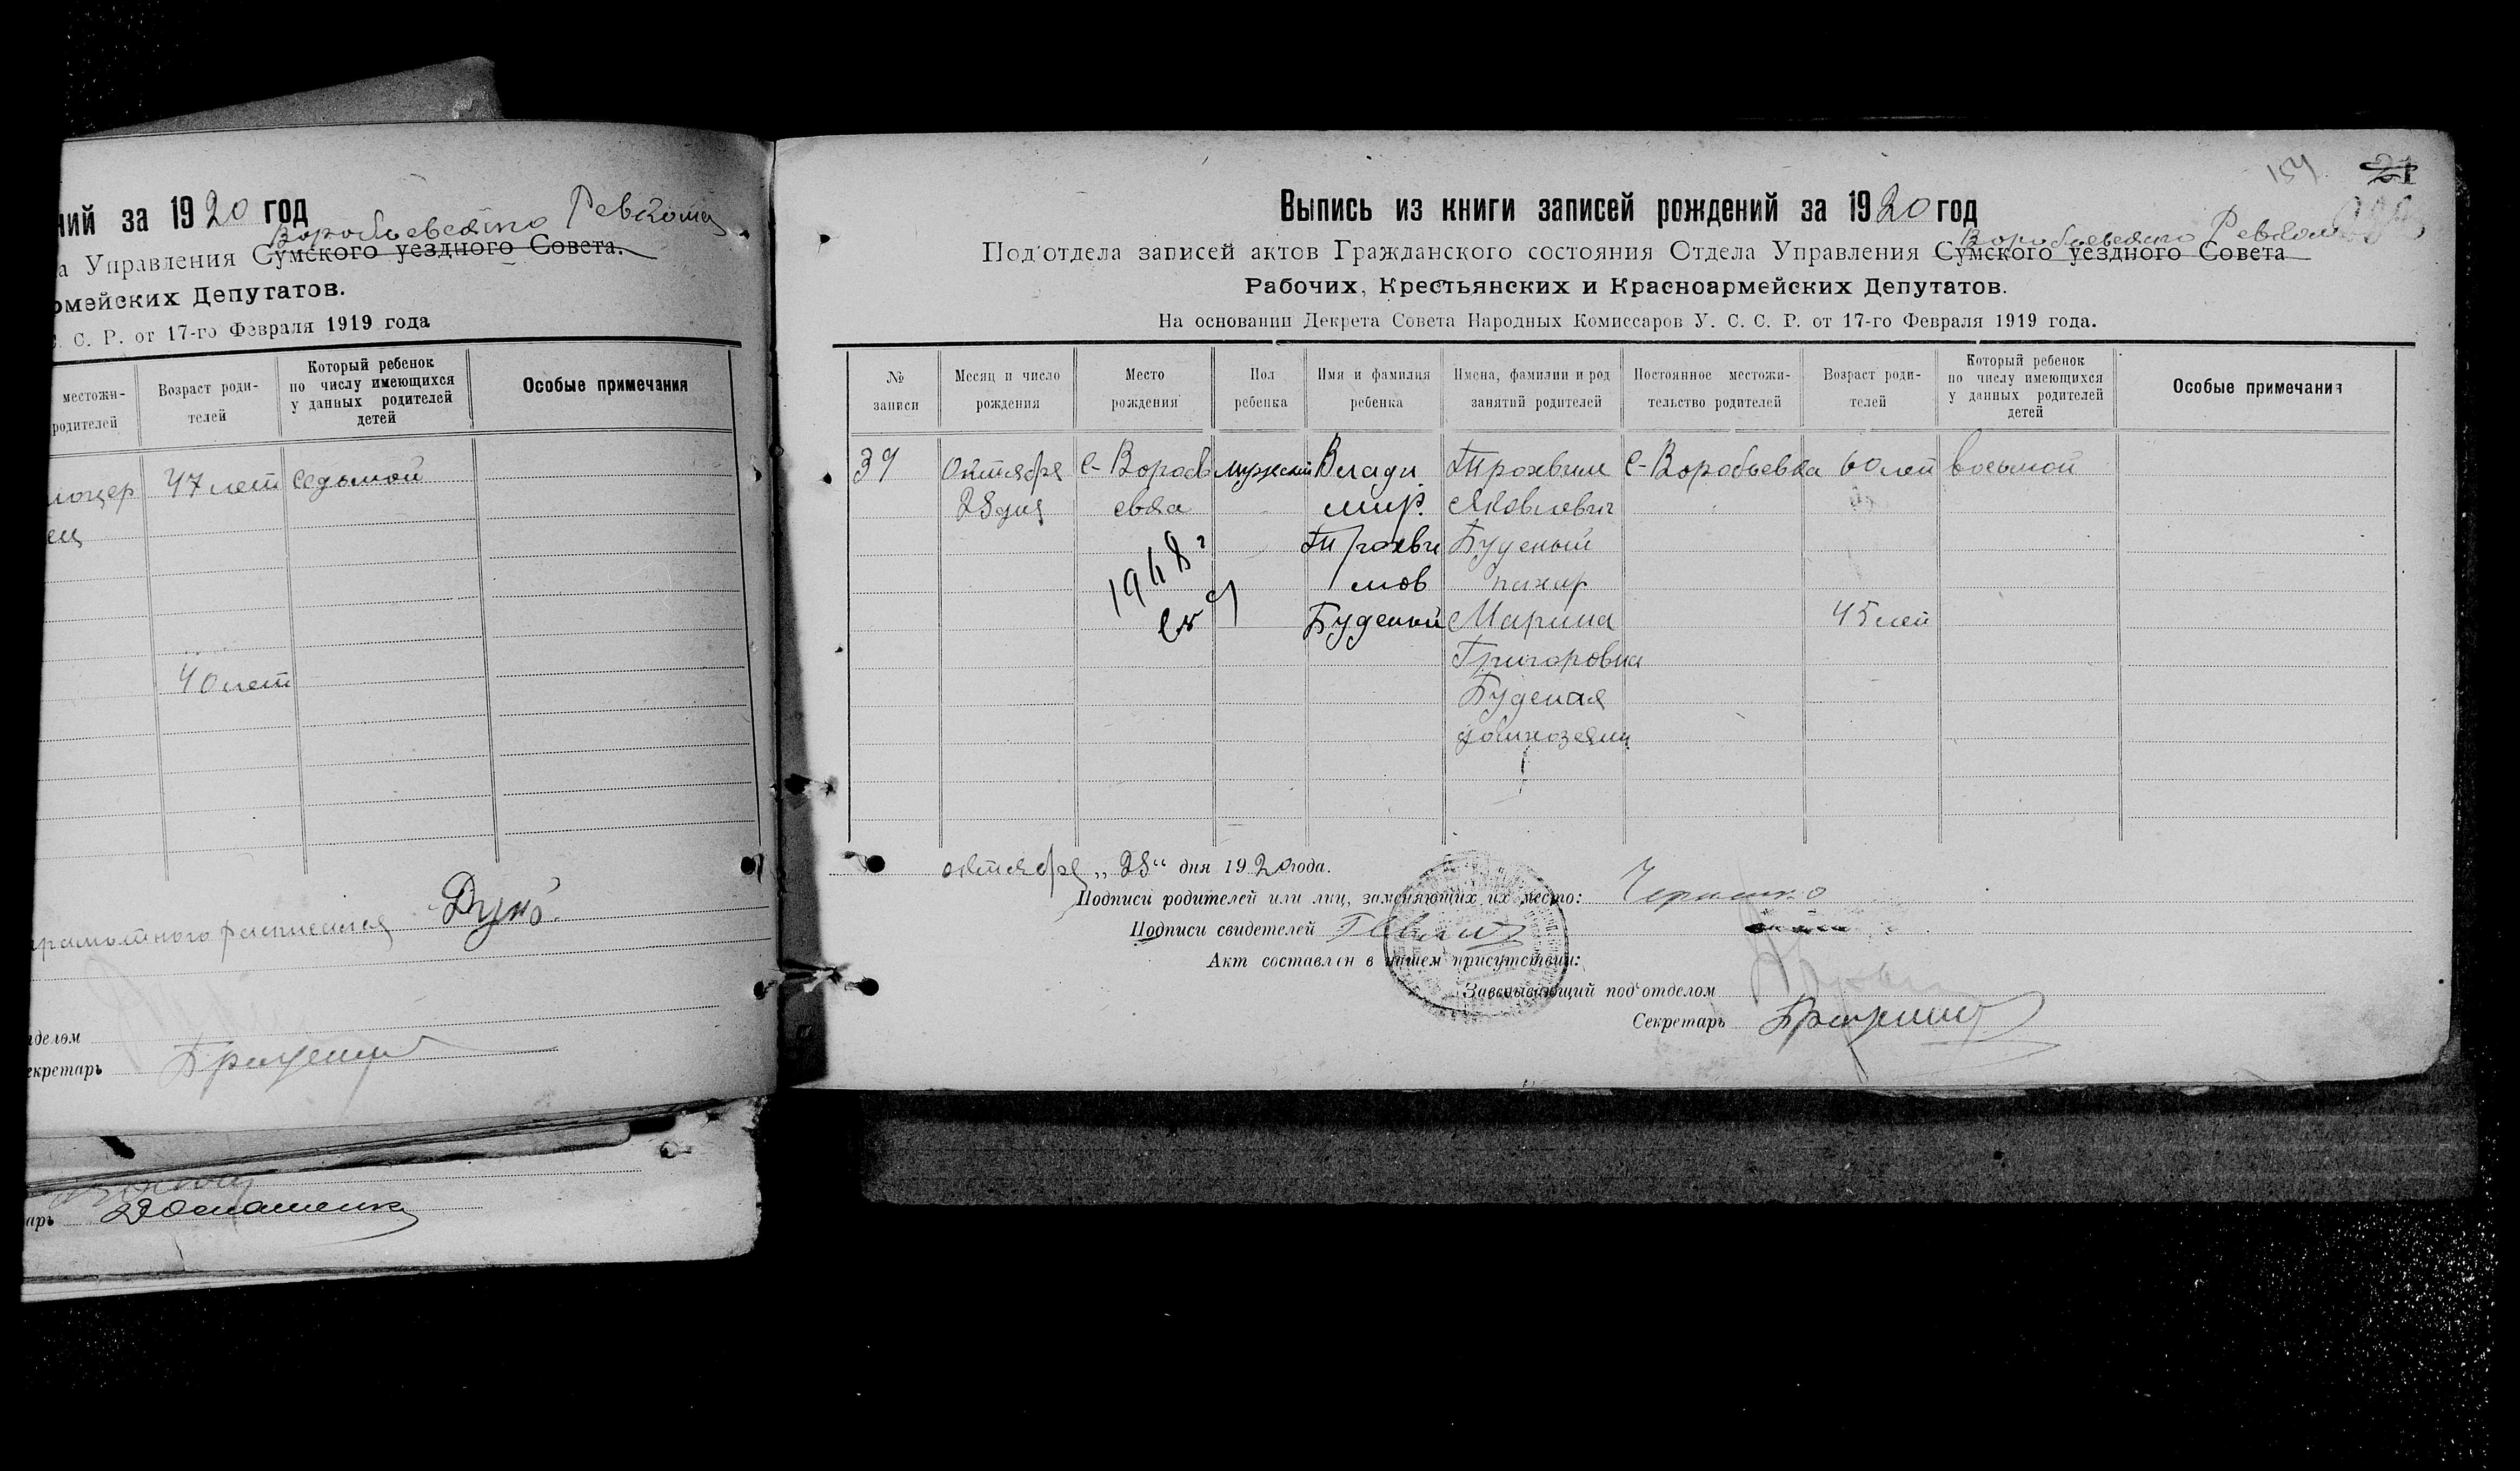 ний за 1920 год
Воробьевского Ревкома
а Управления Сумского уездного Совета.
омейских Депутатов.
С. Р. от 17-го Февраля 1919 года
местожи-
родителей
Возраст роди-
телей
Который ребенок
по числу имеющихся
у данных родителей
детей
Особые примечания
47 лет седьмой
40 лет
расписался
делом
екретарь
арь
154 21
Выпись из книги записей рождений за 1920 год
Воробьевского Ревкома
Под'отдела записей актов Гражданского состояния Отдела Управления Сумского уездного Совета
Рабочих, Крестьянских и Красноармейских Депутатов.
На основании Декрета Совета Народных Комиссаров У. С. С. Р. от 17-го Февраля 1919 года.
№
записи
Месяц и число
рождения
Место
рождения
Пол
ребенка
Имя и фамилия
ребенка
Имена, фамилии и род
занятий родителей
Постоянное местожи-
тельство родителей
Возраст роди-
телей
Который ребенок
по числу имеющихся
у данных родителей
детей
Особые примечания
Октября с-Вороб мужской Влади Трохвим с-Воробьевка 60 лет восьмой
28 дня евка мир. Яковлевич
Трохви Буденый
мов пахар
Буденый Марина 45 лет
Григоровна
Буденая
октября „28“ дня 1920 года.
Подписи родителей или лиц, заменяющих их место:
Подписи свидетелей
Акт составлен в нашем присутствии:
Заведывающий под'отделом
Секретарь